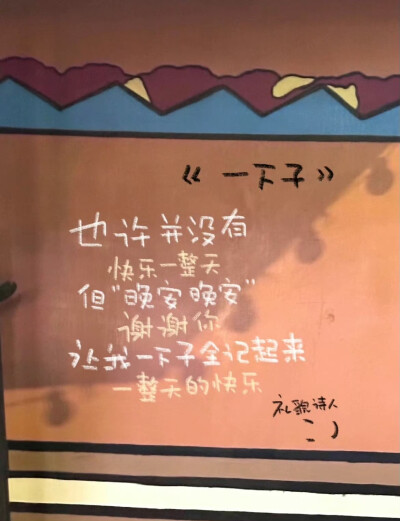 《一下子》
也许并没有
快乐一整天
但"晚安晚安"
谢谢你
让我一下子全记起来
一整天的快乐
礼貌诗人
:)